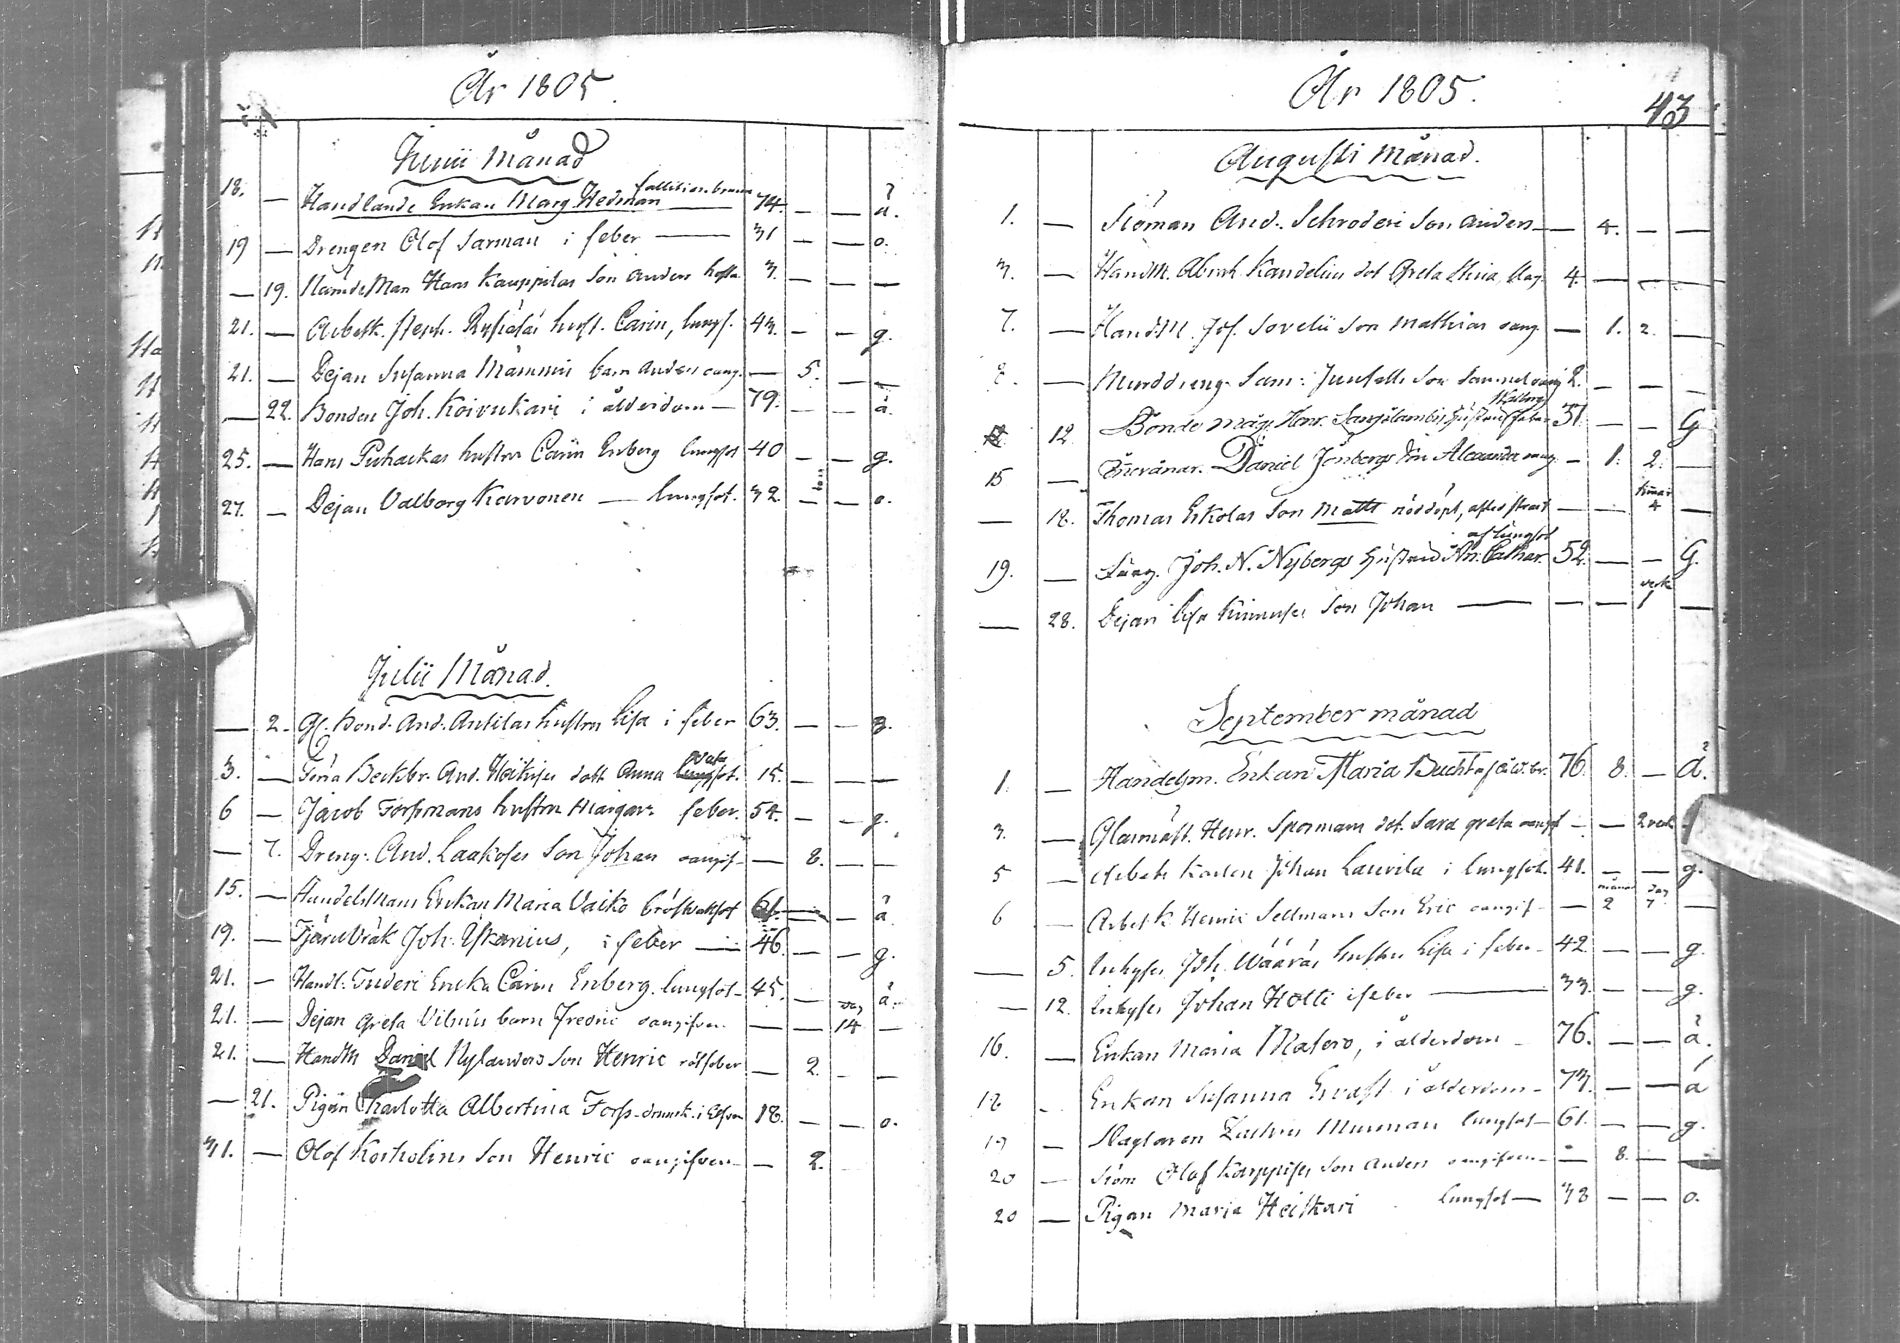 År 1805.
Junii Månad
18. — Handlande Enkan Marg. Hedman 74. — — å.
19 — Drengen Olof Sarman i feber — 31 — — o.
— 19. NämdeMan Hans Kauppilas Son Anders hosta 3. — — —
21. — Arbetk. Steph. hust. Carin, lungs. 43. — — g.
21. — Dejan Susanna Mämmis barn Anders oang. — 5. — —
— 22. Bonden Joh. Koivukari i ålderdom — 79. — — å.
25. — Hans Puhackas hustru Carin Enberg lungsot 40 — — g.
27. — Dejan Valborg Karvonen — lungsot. 32 — — o.
Julii Månad.
— 2. Gl. Bond. And. Anttilas hustru Lisa i feber 63. — — g.
3. — And. Heikises dott Anna lungsot. 15. — — —
6 — Jacob Forssmans hustru Margar. feber. 54. — — g.
— 7. Dreng. And. Laakoses Son Johan oangif. — 8. — —
15. — HandelsMans Enkan Maria Vaiko bröstvattsot 61. — — å
19. — TjäruVrak Joh. Ykanius, i feber — 46 — — g.
21. — Handl. Tuderi Encka Carin Enberg. lungsot — 45. — — å.
dag
21. — Dejan Greta Vilmis barn Fredric oangifven. — — 14 —
21. — HandM Daniel Nylanders Son Henric rötfeber — 2. — —
— 21. Pigan Charlotta Albertina Forss. drunk. i Elfven 18. — — o.
31. — Olof Korkolins Son Henric oangifven — — 2.
År 1805.
43
Augusti Månad.
1. — Siöman And. Schroderi Son Anders — — 4. — —
3. — HandM. Abrah. Kandelius dot Greta Stina, slag. 4. — — —
7. — HandM. Jos. Sovelii Son Mathias oang. — 1. 2. —
— Sam: Juusells Son Samuel oang 2. — — —
Walborg
12. Bonde måg. Henr. hustru feber 31. — — G
15 — Daniel Jönbergs Son Alexander oang. — 1. 2. —
timar
— 18. Thomas Eskolas Son Matts nöddöpt, — — 4 —
af lungsot
19. — Joh. N. Nybergs Hustru An. Cathar. 52. — — G.
veck
— 28. Dejan Lisa Kinnuses Son Johan — — — 1 —
September månad
1. — Handelsm. Enkan Maria 76. 8. — å.
3. — Glasmäst. Henr. Spormans dot. Sara Greta oangif — — 2 veck
5 — Arbets Karlen Johan Laurila i lungsot. 41. — — g.
månad dag
6 — Arbet K. Henric Sellmans Son Eric oangif — — 2 7 —
— 5. Inhyses Joh. Wääräs hustru Lisa i feber — 42 — — g.
— 12. Inhyses Johan Holti i feber — 33. — — g.
16. — Enkan Maria Matero, i ålderdom — 76. — — å.
18 — Enkan Susanna Ervast i ålderdom — 73. — — å
19 — Slagtaren Zachris Murman lungsot — 61. — — g.
20 — Siöm Olof Karppises Son Anders oangifven — — 8. —
20 — Pigan Maria Heikari lungsot — 38 — — o.